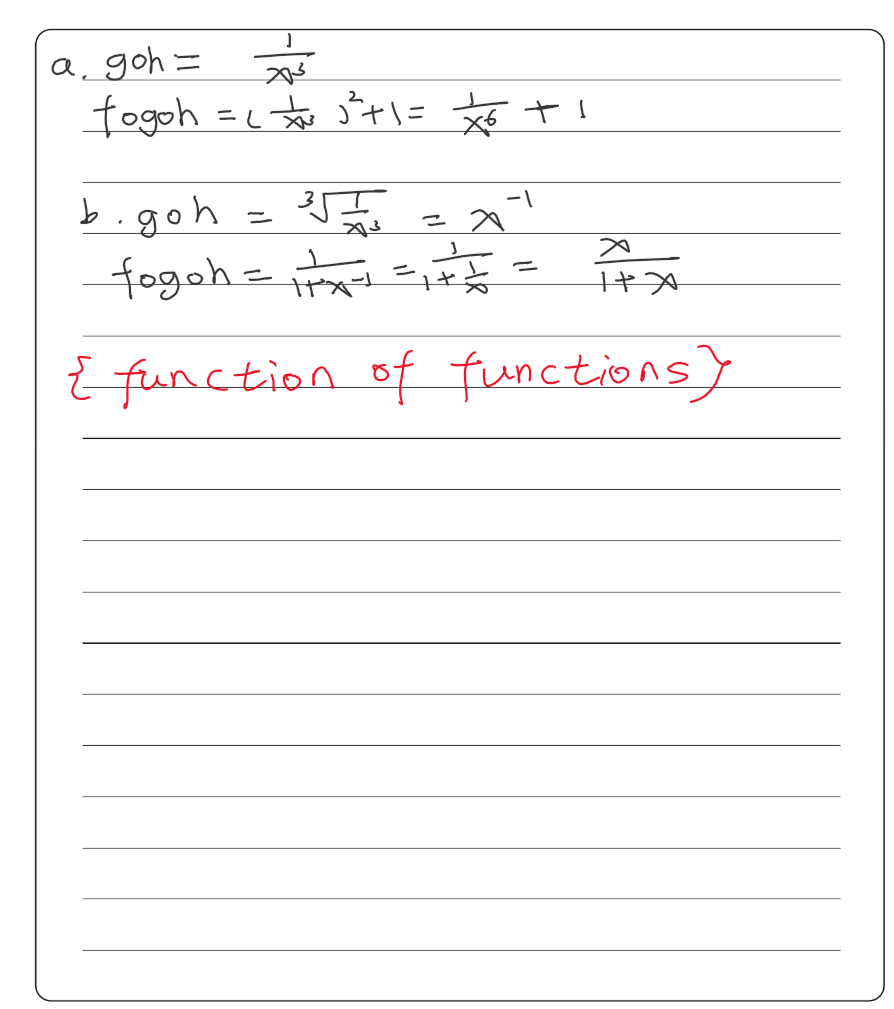 a. goh = 1/x³
fogoh = (1/x³)² + 1 = 1/x⁶ + 1
b. goh = ³√(1/x³) = x⁻¹
fogoh = 1/(1+x⁻¹) = 1/(1+1/x) = x/(1+x)
{ function of functions}